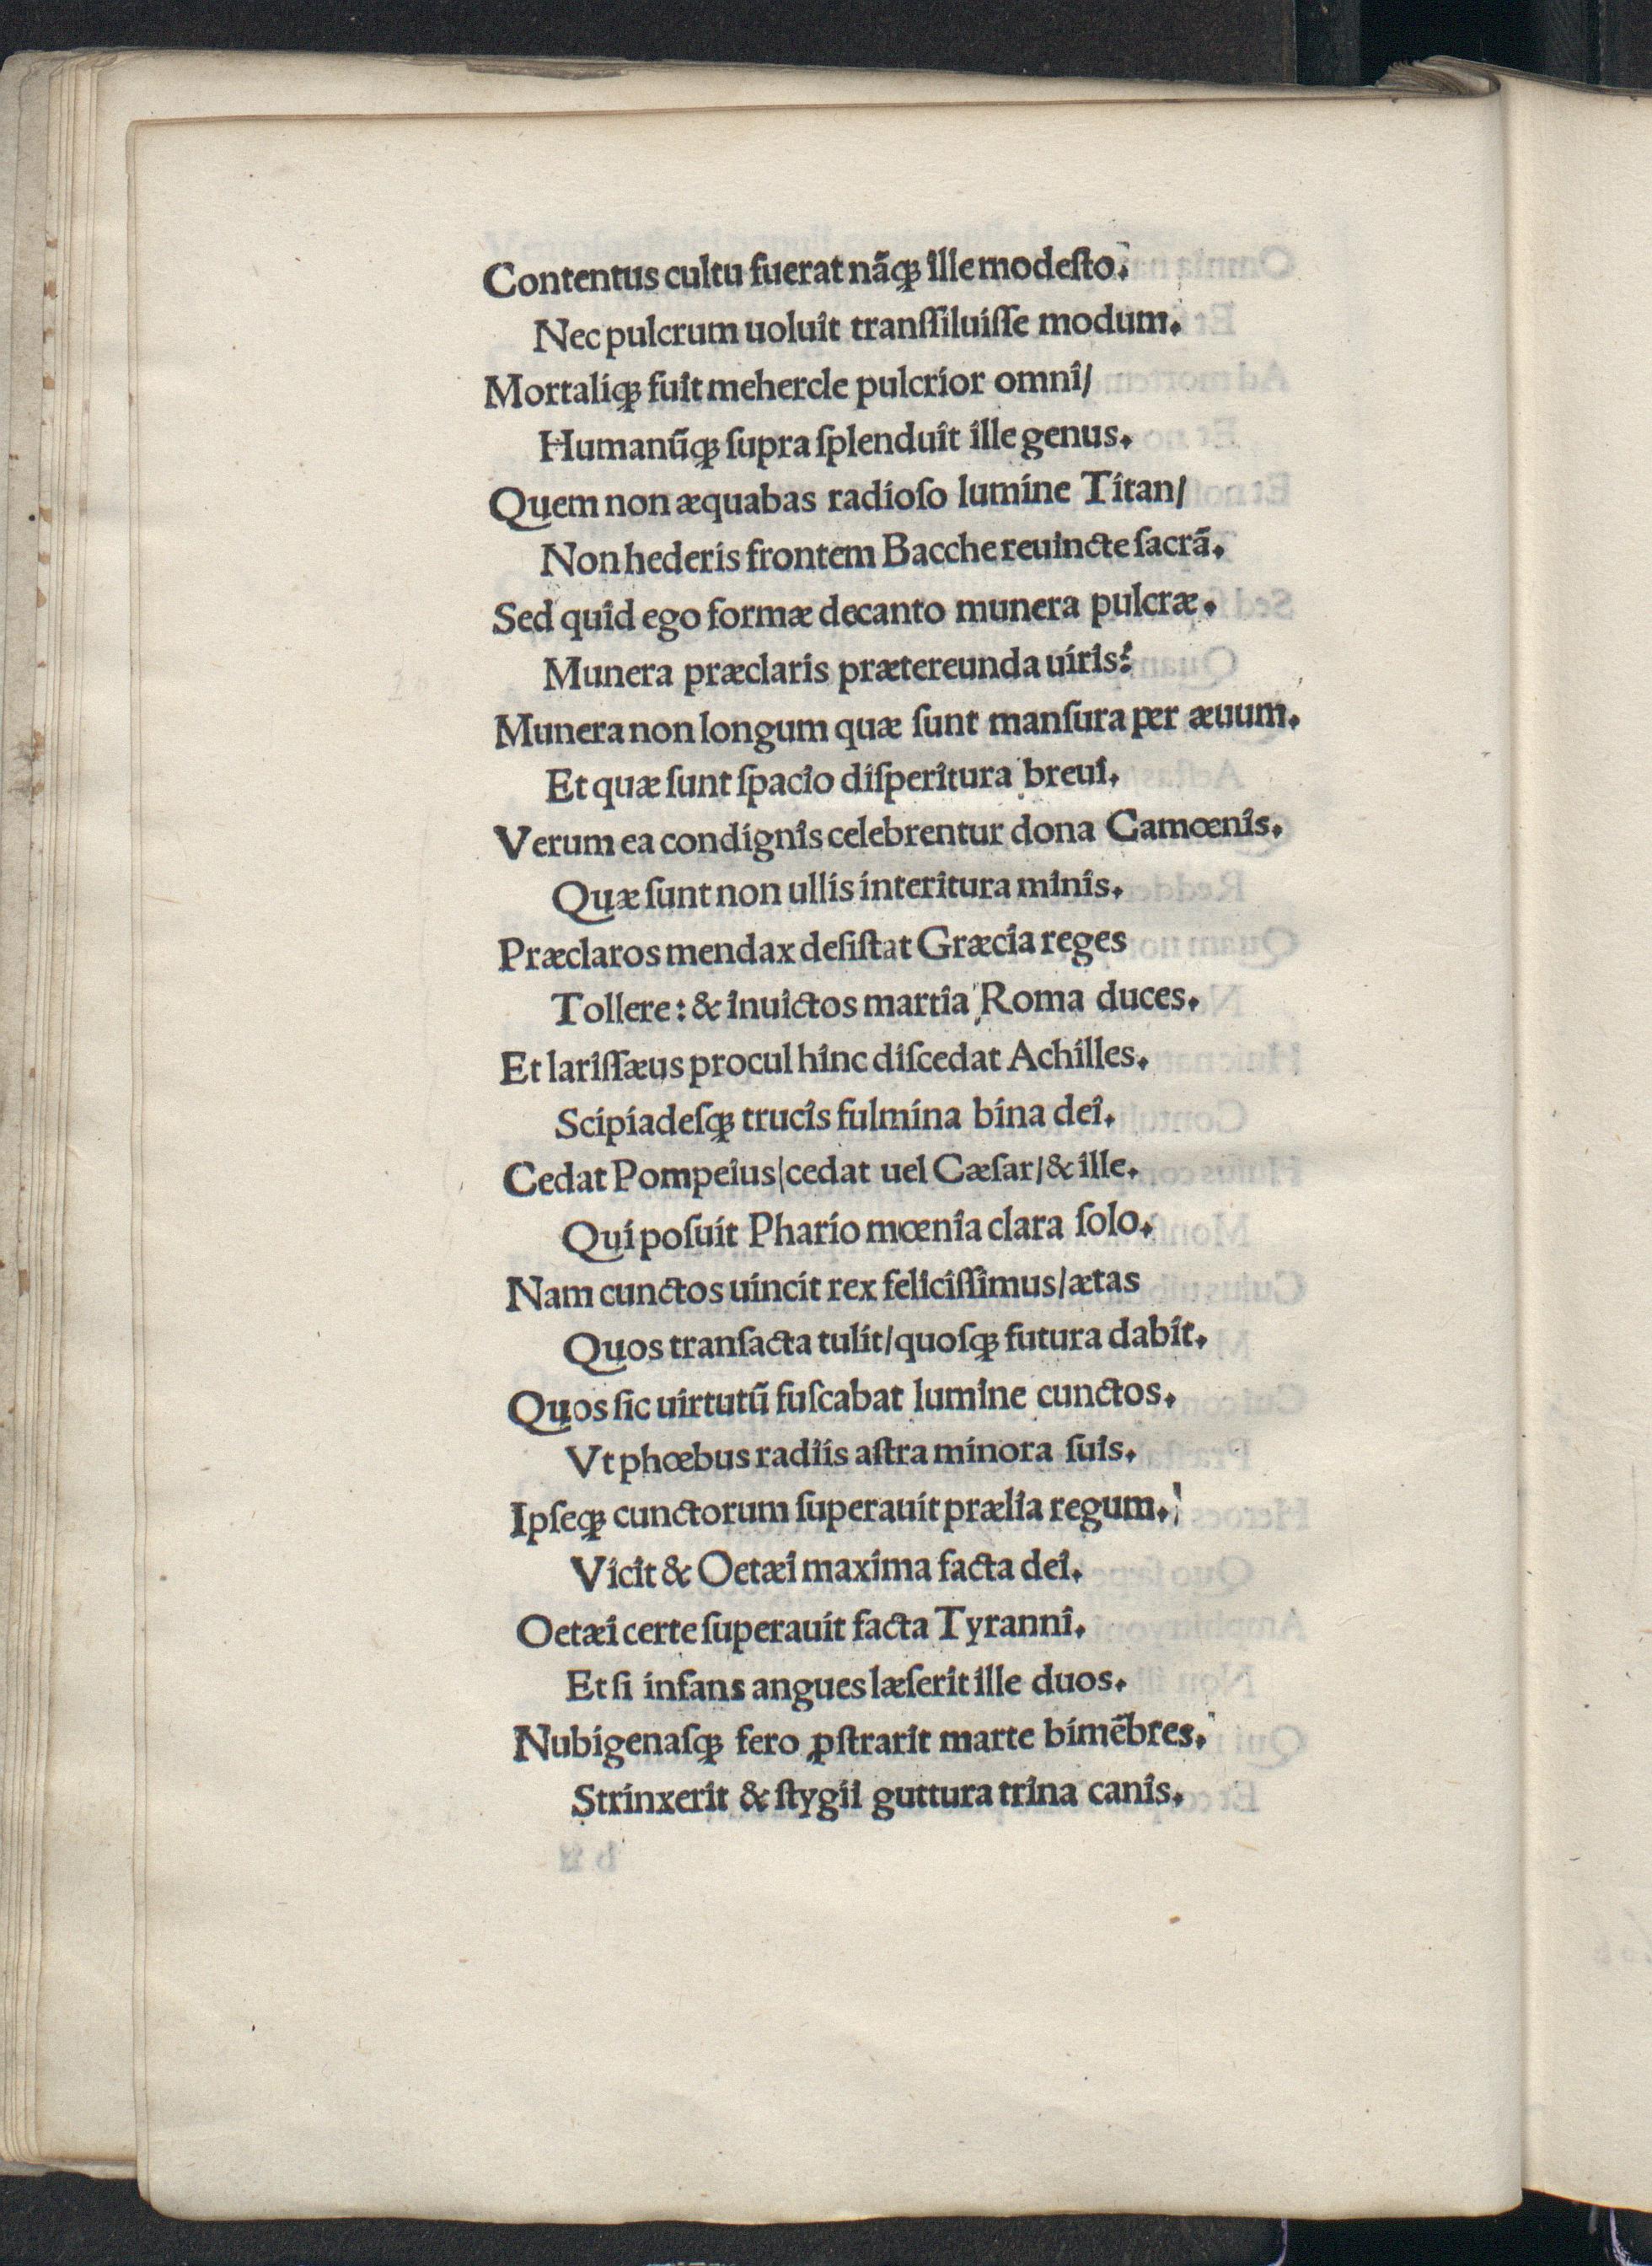 Contentus cultu fuerat nãqꝫ ille modeſto.
Nec pulcrum uoluit tranſſiluiſſe modum.
Mortaliqꝫ fuit mehercle pulcrior omni/
Humanũqꝫ ſupra ſplenduit ille genus.
Quem non æquabas radioſo lumine Titan/
Non hederis frontem Bacche reuincte ſacrã.
Sed quid ego formæ decanto munera pulcræ.
Munera præclaris prætereunda uiris?
Munera non longum quæ ſunt manſura per æuum.
Et quæ ſunt ſpacio diſperitura breui.
Verum ea condignis celebrentur dona Camœnis.
Quæ ſunt non ullis interitura minis.
Præclaros mendax deſiſtat Græcia reges
Tollere: & inuictos martia Roma duces.
Et lariſſæus procul hinc diſcedat Achilles.
Scipiadeſqꝫ trucis fulmina bina dei.
Cedat Pompeius/cedat uel Cæſar/& ille.
Qui poſuit Phario mœnia clara ſolo.
Nam cunctos uincit rex feliciſſimus/ætas
Quos tranſacta tulit/quoſqꝫ futura dabit.
Quos ſic uirtutũ fuſcabat lumine cunctos.
Vt phœbus radiis aſtra minora ſuis.
Ipſeqꝫ cunctorum ſuperauit prælia regum.
Vicit & Oetæi maxima facta dei.
Oetæi certe ſuperauit facta Tyranni.
Et ſi infans angues læſerit ille duos.
Nubigenaſqꝫ fero ꝓſtrarit marte bimẽbres.
Strinxerit & ſtygii guttura trina canis.